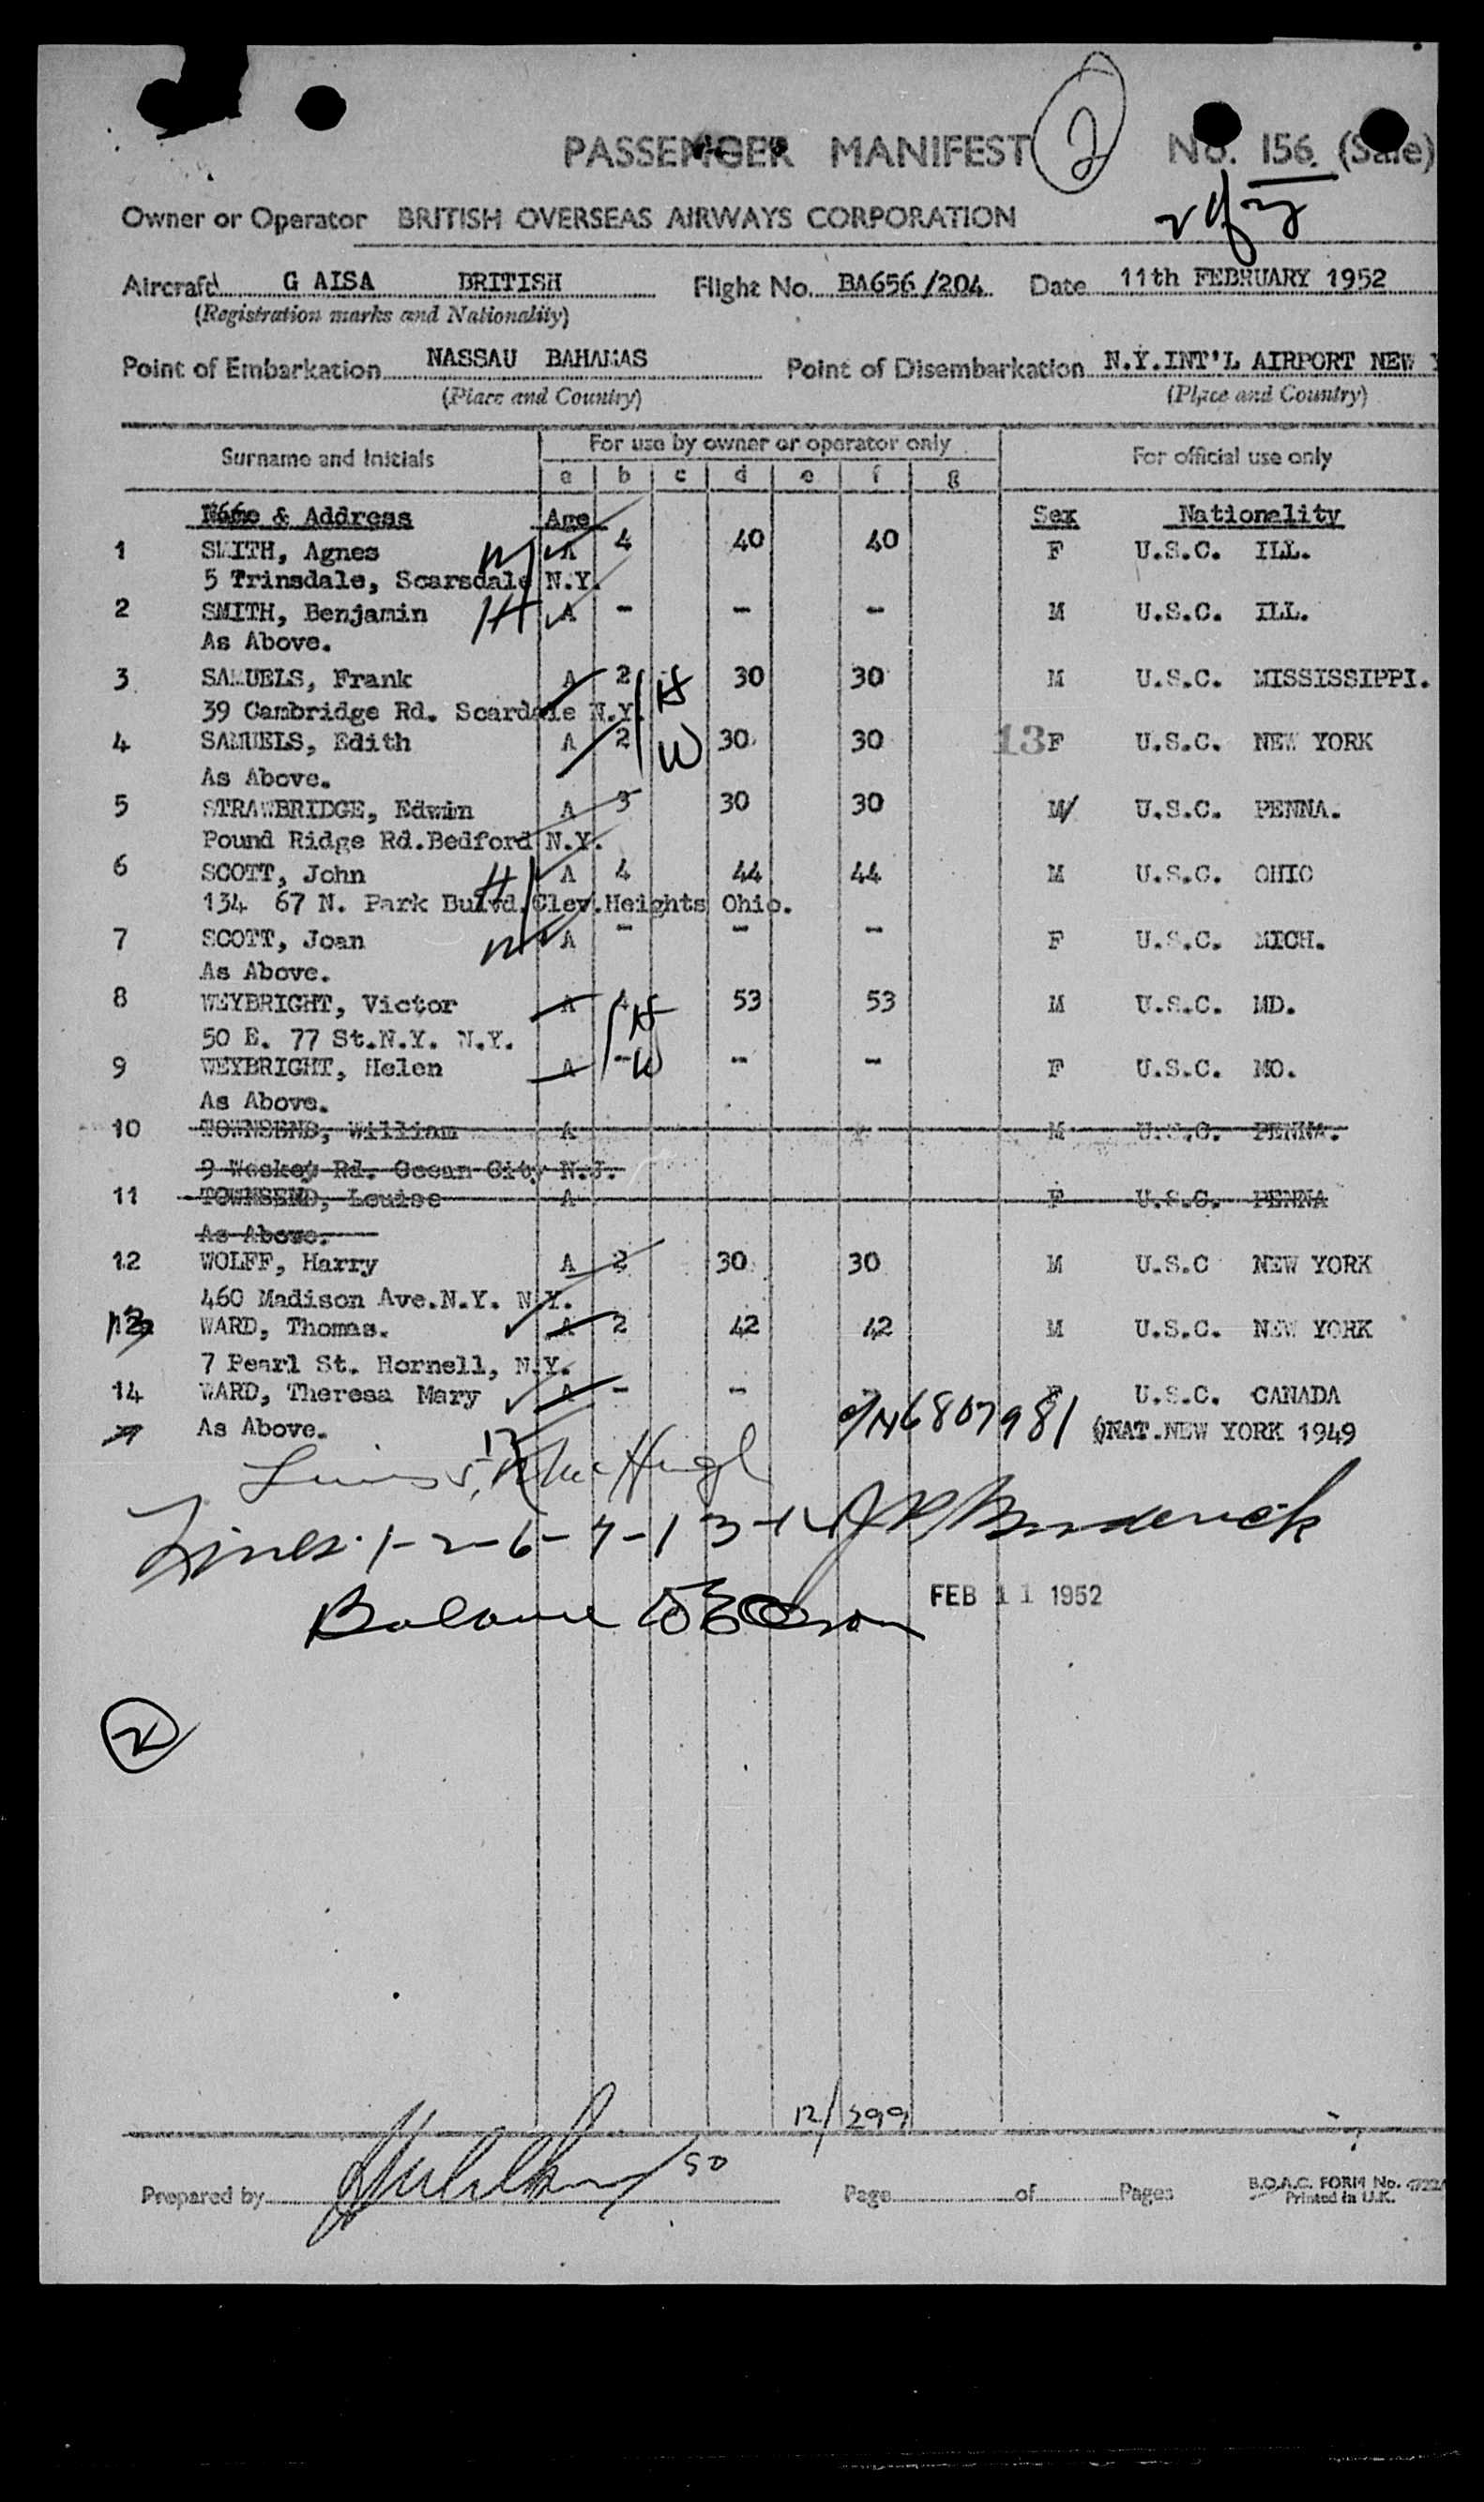 PASSENGER MANIFEST 2 No. 156. (Sale)
Owner or Operator BRITISH OVERSEAS AIRWAYS CORPORATION
Aircraft G AISA BRITISH Flight No. BA656/204 Date 11th FEBRUARY 1952
(Registration marks and Nationality)
Point of Embarkation NASSAU BAHAMAS Point of Disembarkation N.Y.INT'L AIRPORT NEW
(Place and Country) (Place and Country)
Surname and Initials For use by owner or operator only For official use only
a b c d e f g
Name & Address Age Sex Nationality
1 SMITH, Agnes W A 4 40 40 F U.S.C. ILL.
5 Trinsdale, Scarsdale N.Y.
2 SMITH, Benjamin H A - - - M U.S.C. ILL.
As Above.
3 SAMUELS, Frank A 2 H 30 30 M U.S.C. MISSISSIPPI.
39 Cambridge Rd. Scardale N.Y.
4 SAMUELS, Edith A 2 W 30 30 13 F U.S.C. NEW YORK
As Above.
5 STRAWBRIDGE, Edwin A 3 30 30 M U.S.C. PENNA.
Pound Ridge Rd.Bedford N.Y.
6 SCOTT, John H A 4 44 44 M U.S.C. OHIO
134 67 N. Park Bulvd.Clev.Heights Ohio.
7 SCOTT, Joan W A - - - F U.S.C. MICH.
As Above.
8 WEYBRIGHT, Victor A 4 H 53 53 M U.S.C. MD.
50 E. 77 St.N.Y. N.Y.
9 WEYBRIGHT, Helen A - W - - F U.S.C. MO.
As Above.
10 TOWNSEND, William A M U.S.C. PENNA.
9 Weskey Rd. Ocean City N.J.
11 TOWNSEND, Louise A F U.S.C. PENNA
As Above.
12 WOLFF, Harry A 2 30 30 M U.S.C NEW YORK
460 Madison Ave.N.Y. N.Y.
13 WARD, Thomas. A 2 42 42 M U.S.C. NEW YORK
7 Pearl St. Hornell, N.Y.
14 WARD, Theresa Mary A - - - F U.S.C. CANADA
As Above. 6807981 NAT.NEW YORK 1949
12
Lines 1-2-6-7-13-14 Broderick
Balance FEB 11 1952
2
12/ 299
Prepared by Page of Pages
B.O.A.C. FORM No.
Printed in U.K.